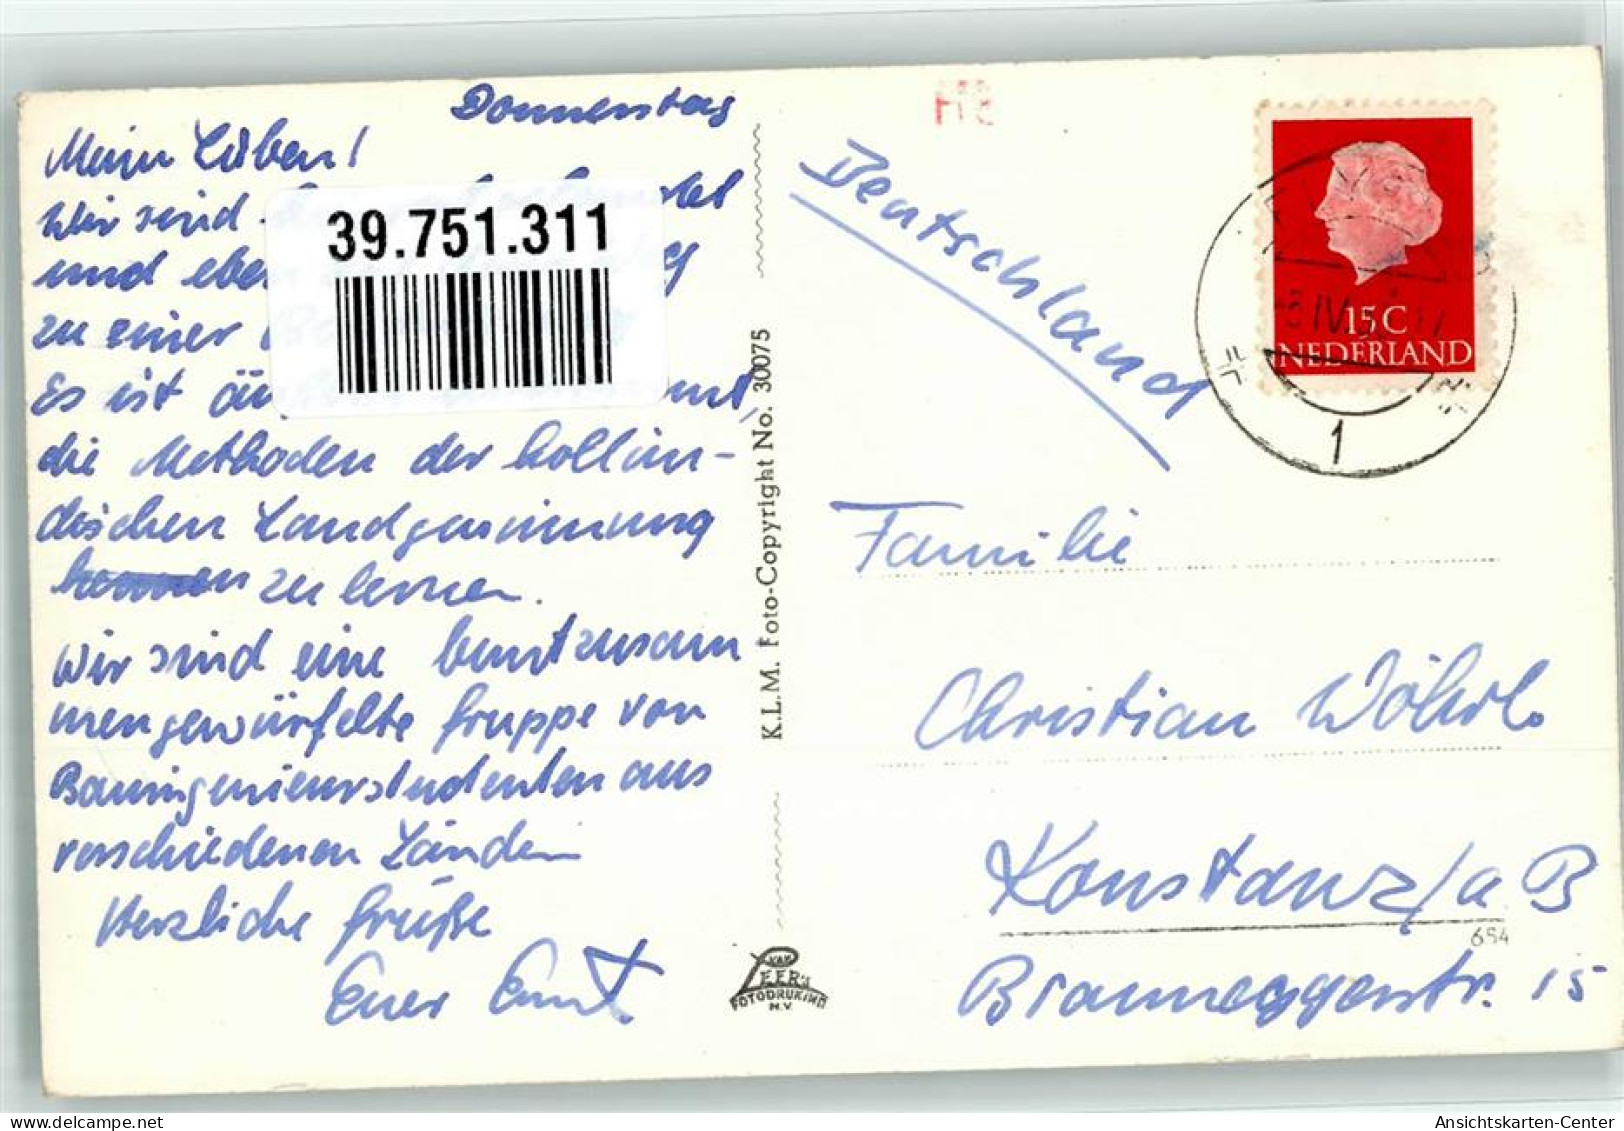 Donnerstag
Meine Lieben!
Wir sind
und eben
zu einer
39.751.311
Es ist
die Methoden der hollän-
dischen Landgewinnung
zu lernen.
Wir sind eine buntzusam
mengewürfelte Gruppe von
Bauingenieurstudenten aus
verschiedenen Ländern
Herzliche Grüße
Euer Ernst
K.L.M. Foto-Copyright No. 30075
VAN
LEER's
FOTODRUKIND
N.V.
Deutschland
15C
NEDERLAND
1
Familie
Christian Wöhrle
Konstanz/a B
654
Brauneggerstr. 15
Ansichtskarten-Center